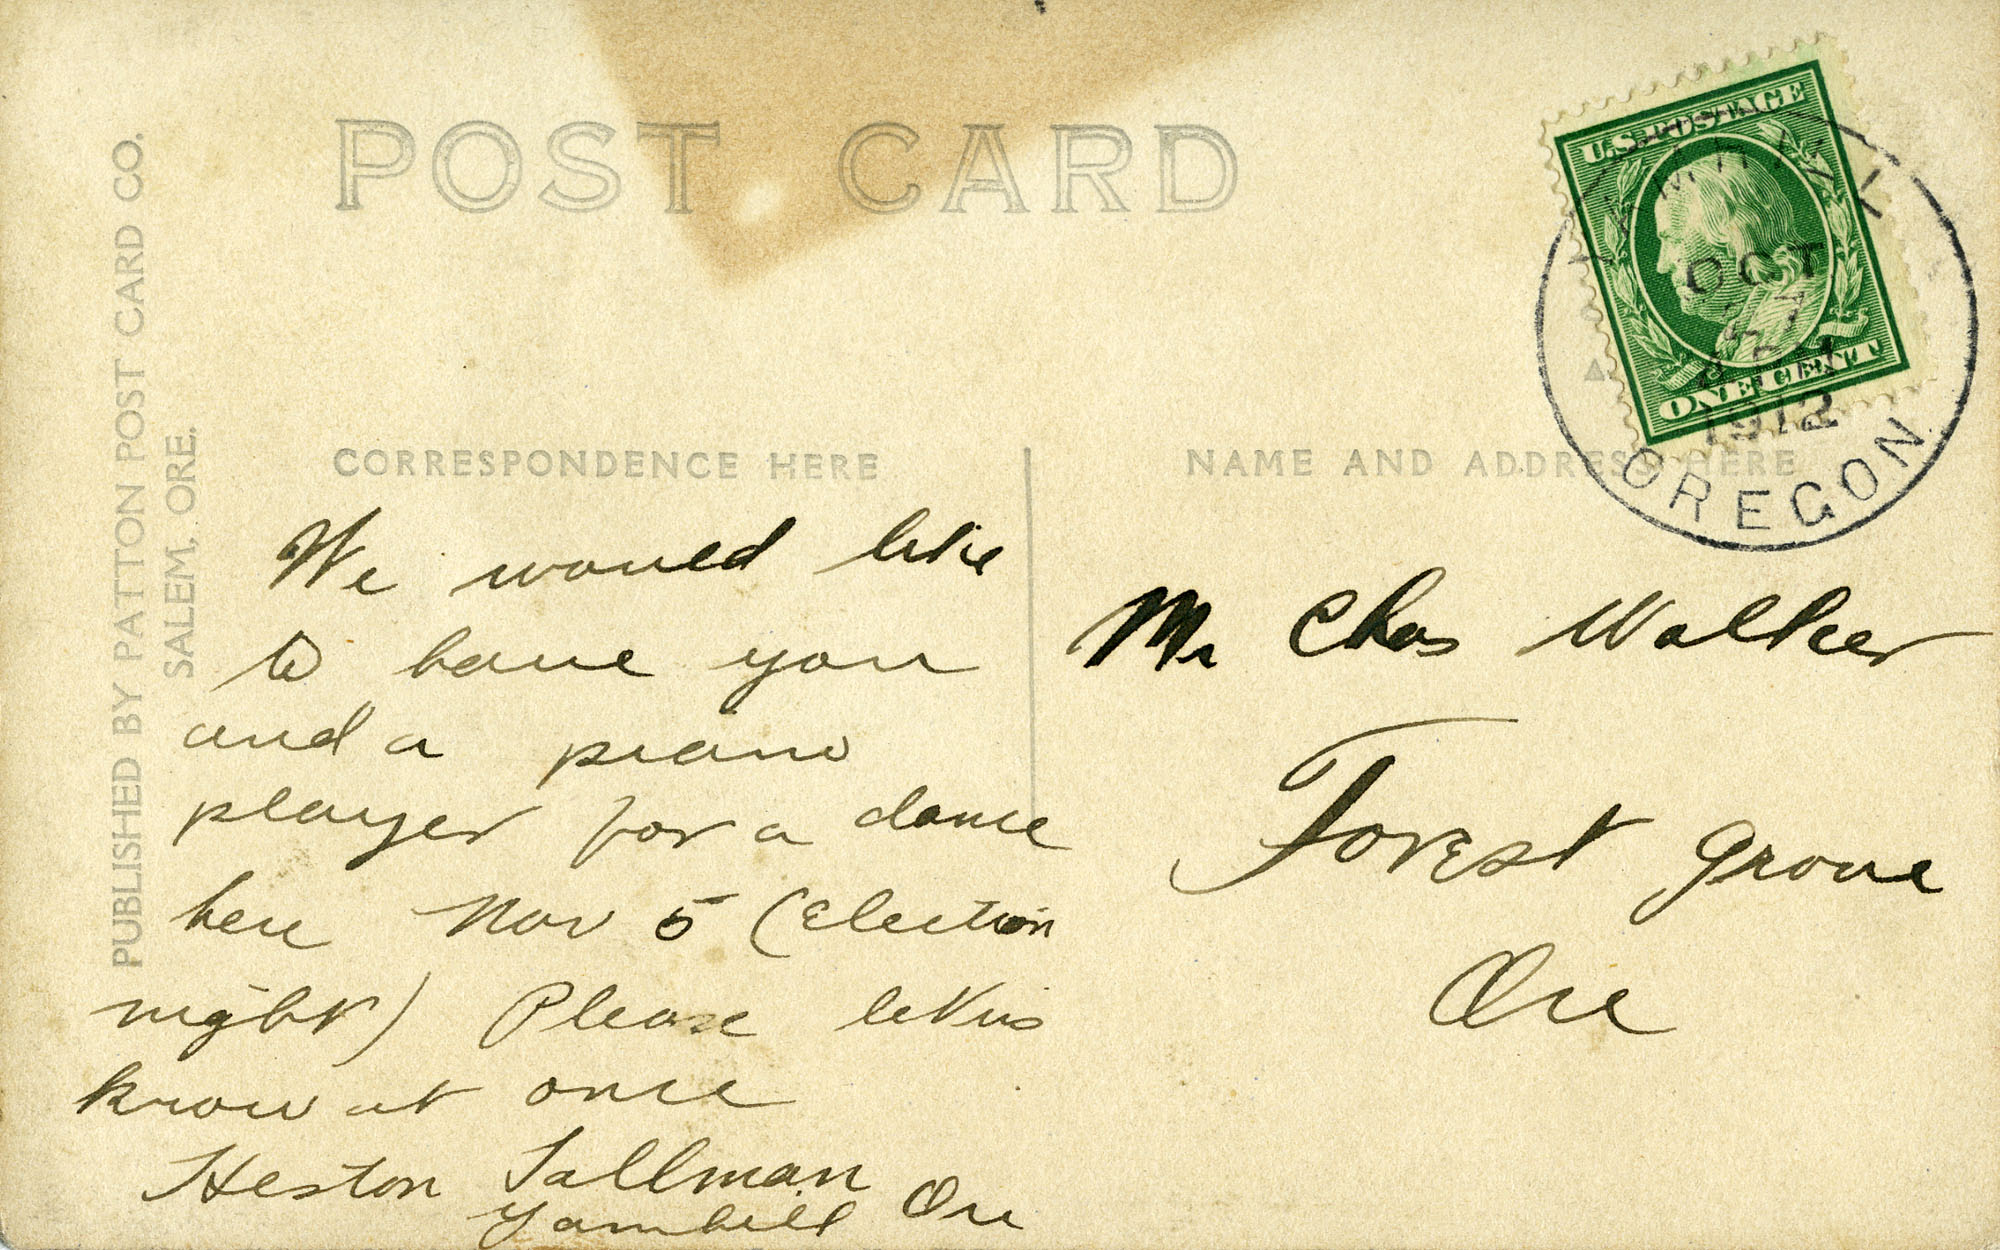 POST CARD
PUBLISHED BY PATTON POST CARD CO.
SALEM, ORE.
CORRESPONDENCE HERE
We would like
to have you
and a piano
player for a dance
here Nov 5 (Election
night) Please let us
know at once
Heston Tallman
Yamhill Ore
NAME AND ADDRESS HERE
U.S. POSTAGE
ONE CENT
YAMHILL
OCT
27
4 PM
1912
OREGON
Mr Chas Walker
Forest Grove
Ore